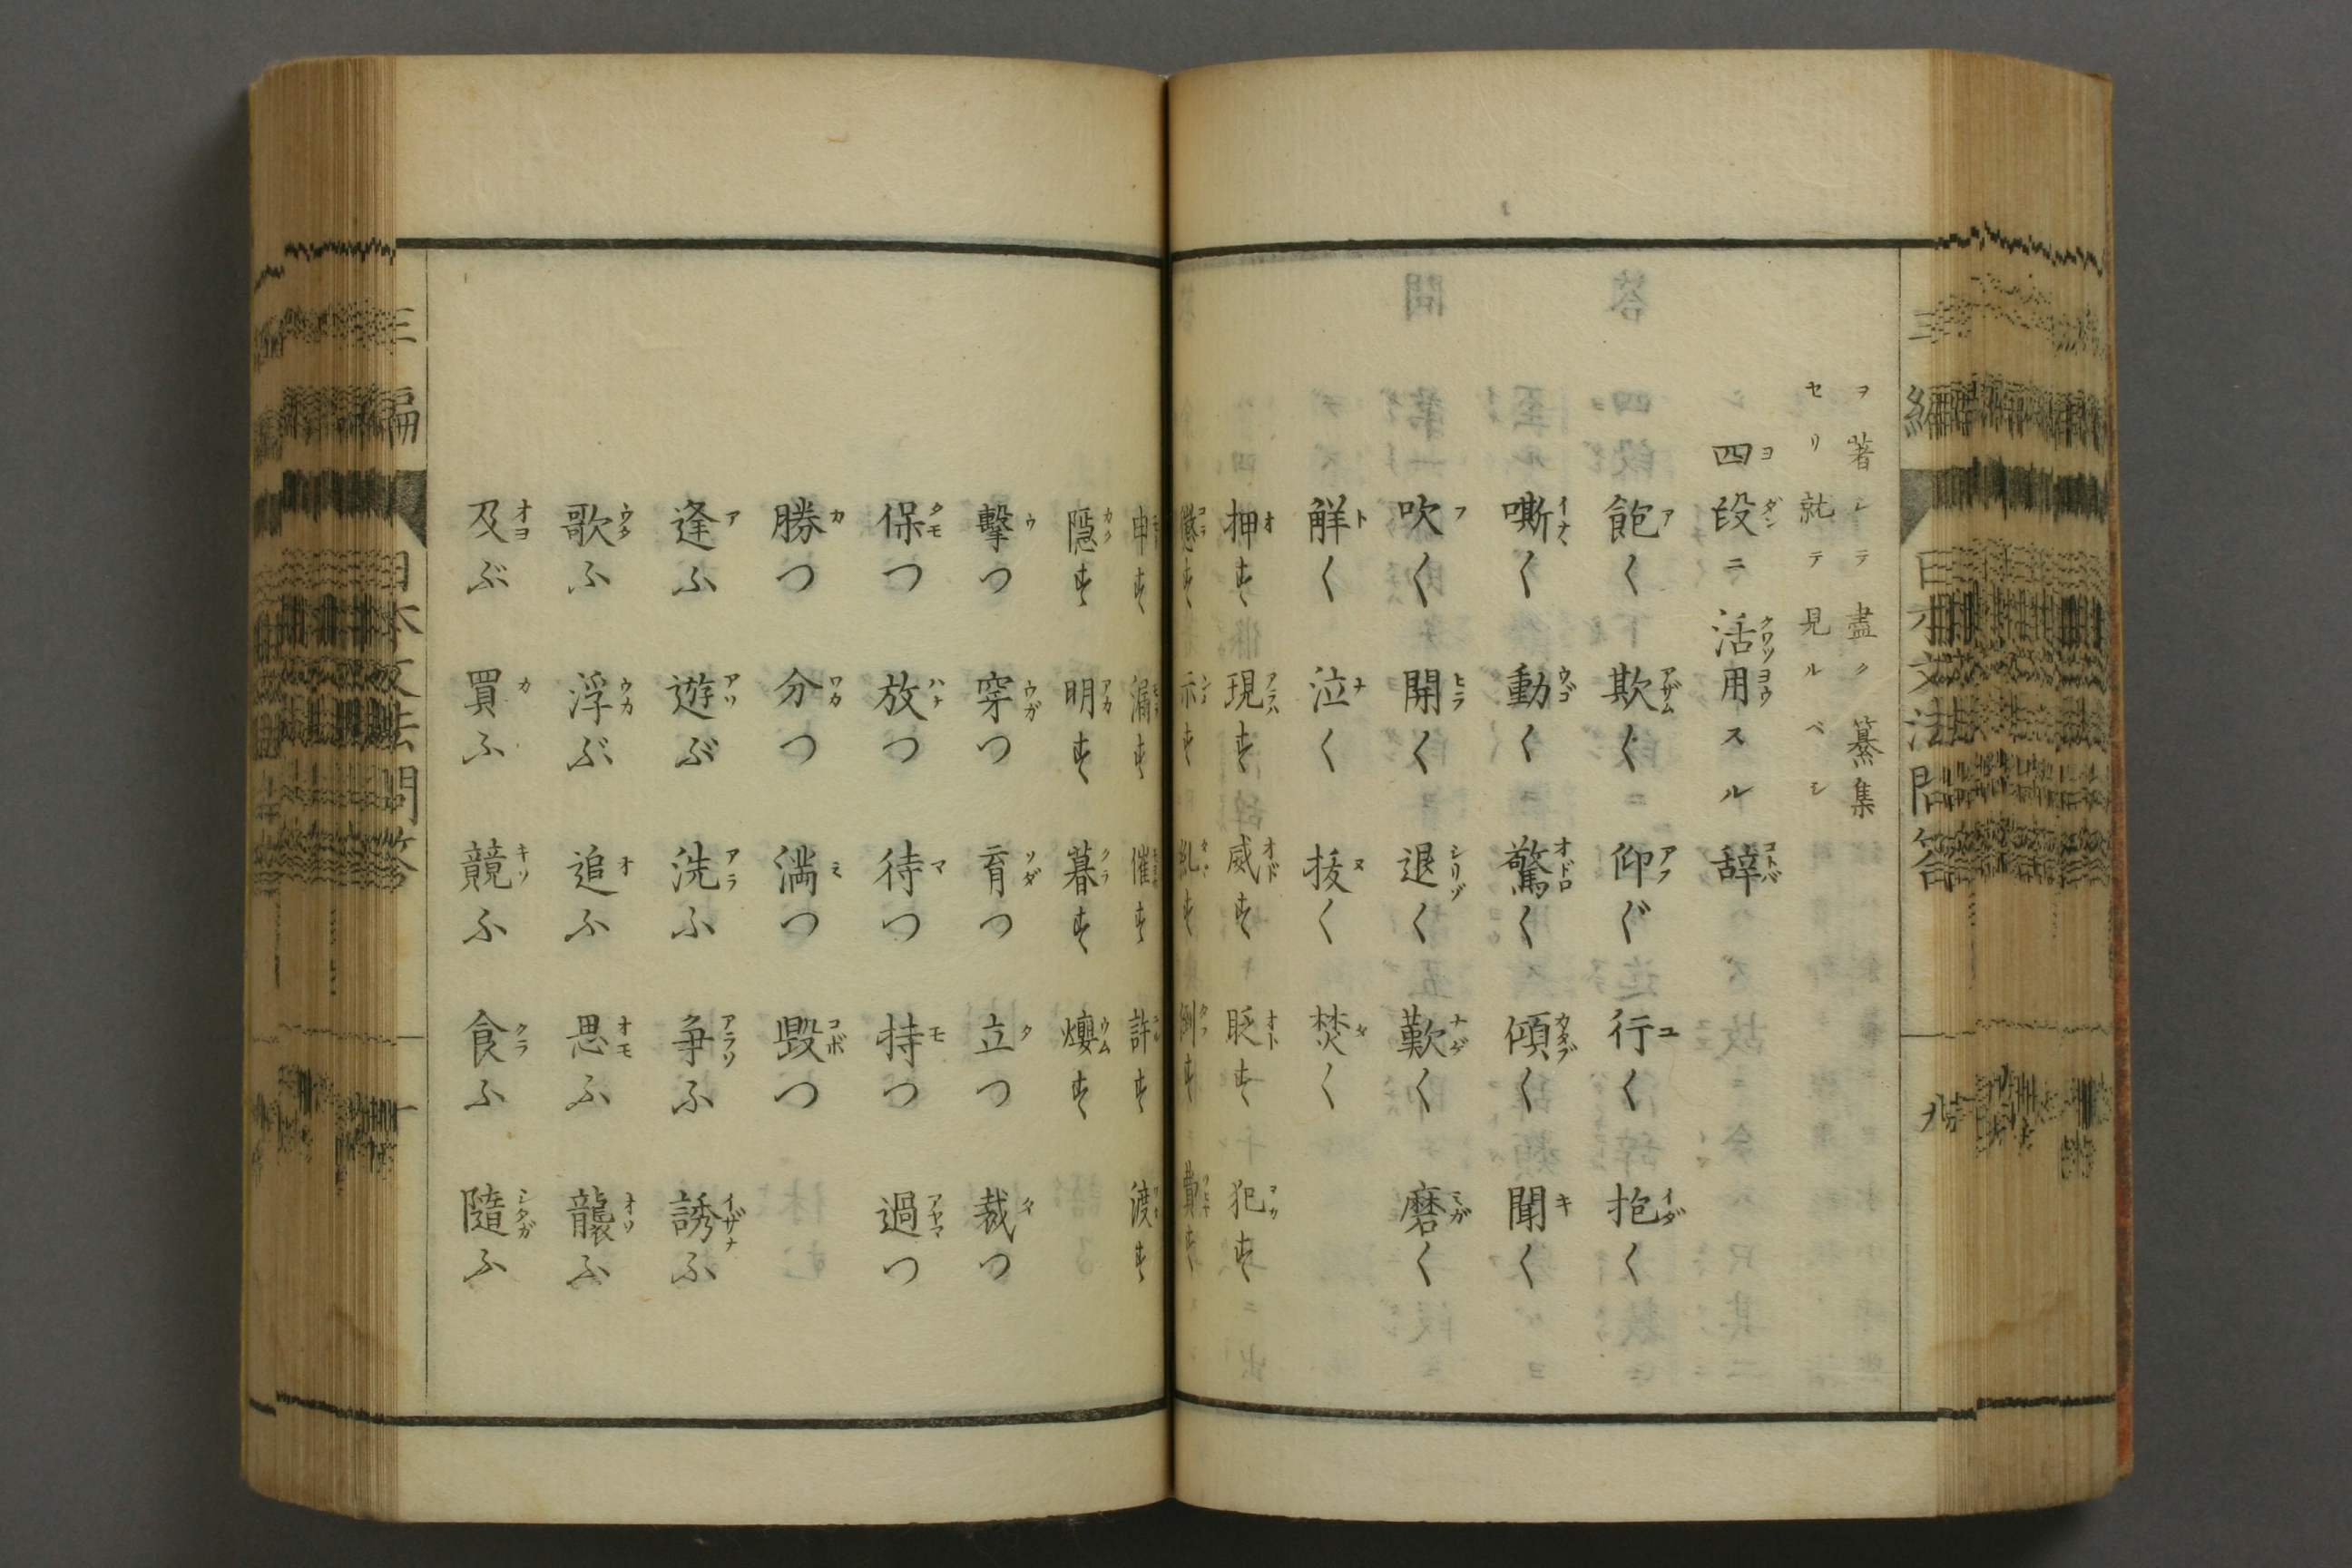 ヲ著シテ盡ク纂集
セリ就テ見ルベシ
四段ニ活用スル辞
飽く 欺く 仰ぐ 行く 抱く
嘶く 動く 驚く 傾く 聞く
吹く 開く 退く 歎く 磨く
解く 泣く 抜く 焚く
押す 現す 威す 貶す 犯す
懲す 示す 糺す 倒す 費す
申す 漏す 催す 許す 渡す
隠す 明す 暮す
擊つ 穿つ 育つ 立つ 裁つ
保つ 放つ 待つ 持つ 過つ
勝つ 分つ 満つ 毀つ
逢ふ 遊ぶ 洗ふ 争ふ 誘ふ
歌ふ 浮ぶ 追ふ 思ふ 襲ふ
及ぶ 買ふ 競ふ 食ふ 隨ふ
三編 日本文法問答